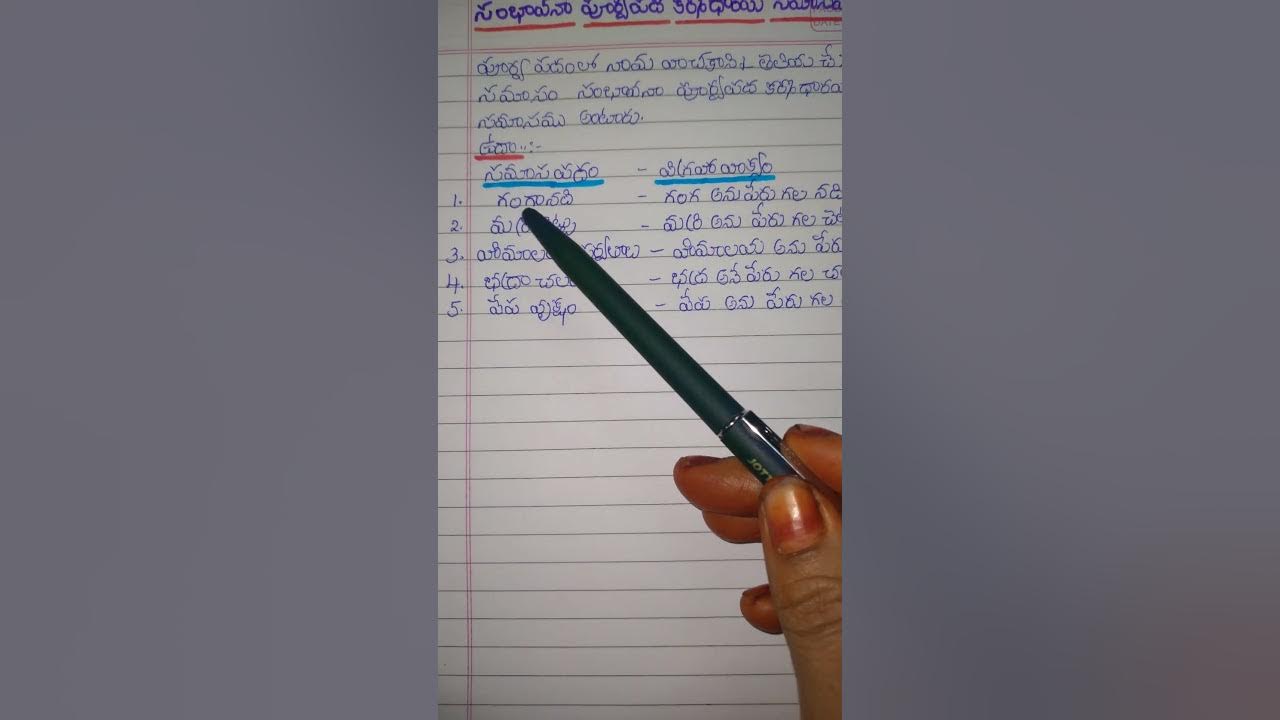 సంభావనా పూర్వపద కర్మధారయ సమాసము
DATE
పూర్వ పదంలో నామ వాచకాన్ని తెలియ చే
సమాసం సంభావనా పూర్వపద కర్మధారయ
సమాసము అంటారు.
ఉదా :-
సమాస పదం - విగ్రహ వాక్యం
1. గంగానది - గంగ అను పేరు గల నది
2. - మర్రి అను పేరు గల చె
3. - హిమాలయ అను పేరు
4. - భద్ర అనే పేరు గల
5. వేప వృక్షం - వేప అను పేరు గల
JOTT